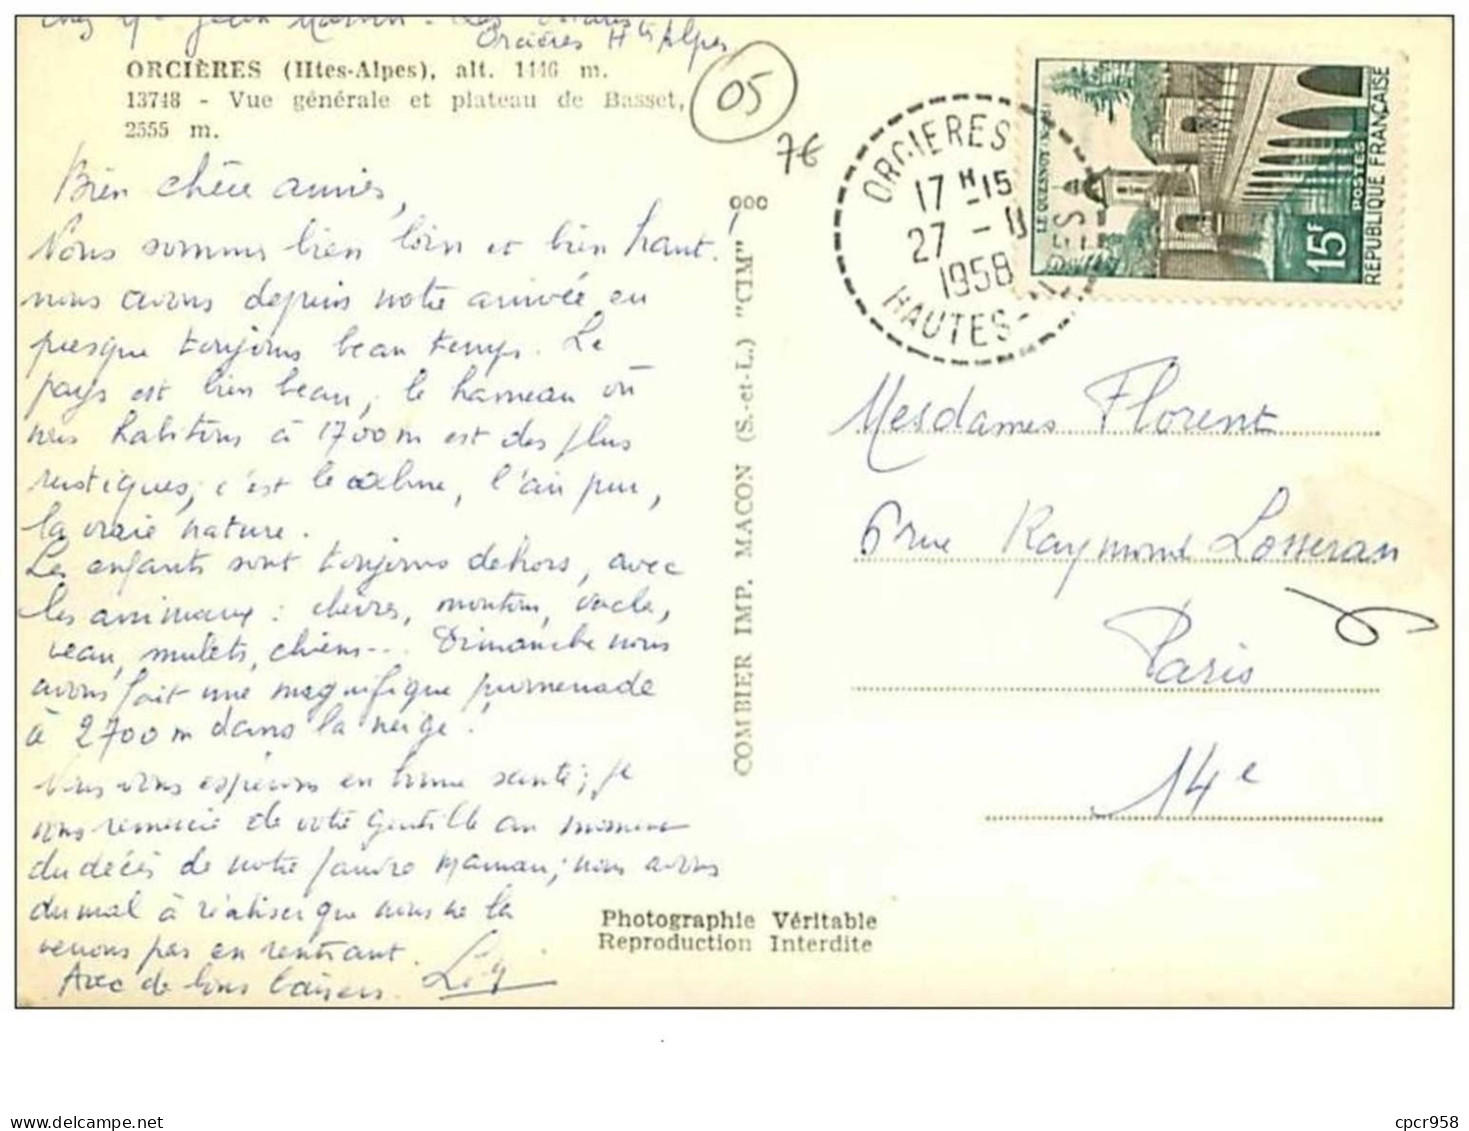 chez Mr Jean Martin - Les
Orcières Htes Alpes
ORCIÈRES (Htes-Alpes), alt. 1446 m.
13748 - Vue générale et plateau de Basset,
2555 m.
05
7€
Bien chère amies,
Nous sommes bien loin et bien haut !
nous avons depuis notre arrivée eu
presque toujours beau temps. Le
pays est bien beau, le hameau où
nous habitons à 1700 m est des plus
rustiques, c'est le calme, l'air pur,
la vraie nature.
Les enfants sont toujours dehors, avec
les animaux : chèvres, moutons, vache,
veau, mulets, chiens... Dimanche nous
avons fait une magnifique promenade
à 2700 m dans la neige !
Nous vous espérons en bonne santé ; je
vous remercie de votre gentille au moment
du décès de notre pauvre Maman ; nous avons
du mal à réaliser que nous ne la
verrons pas en rentrant.
Avec de bons baisers.
ooo
COMBIER IMP. MACON (S.-et-L.) "CIM"
Photographie Véritable
Reproduction Interdite
ORCIERES
17 H -15
27 - II
1958
HAUTES-ALPES
LE QUESNOY (Nord)
15F
POSTES
REPUBLIQUE FRANÇAISE
Mesdames Florent
6 rue Raymond Losseran
Paris
14e
cpcr958